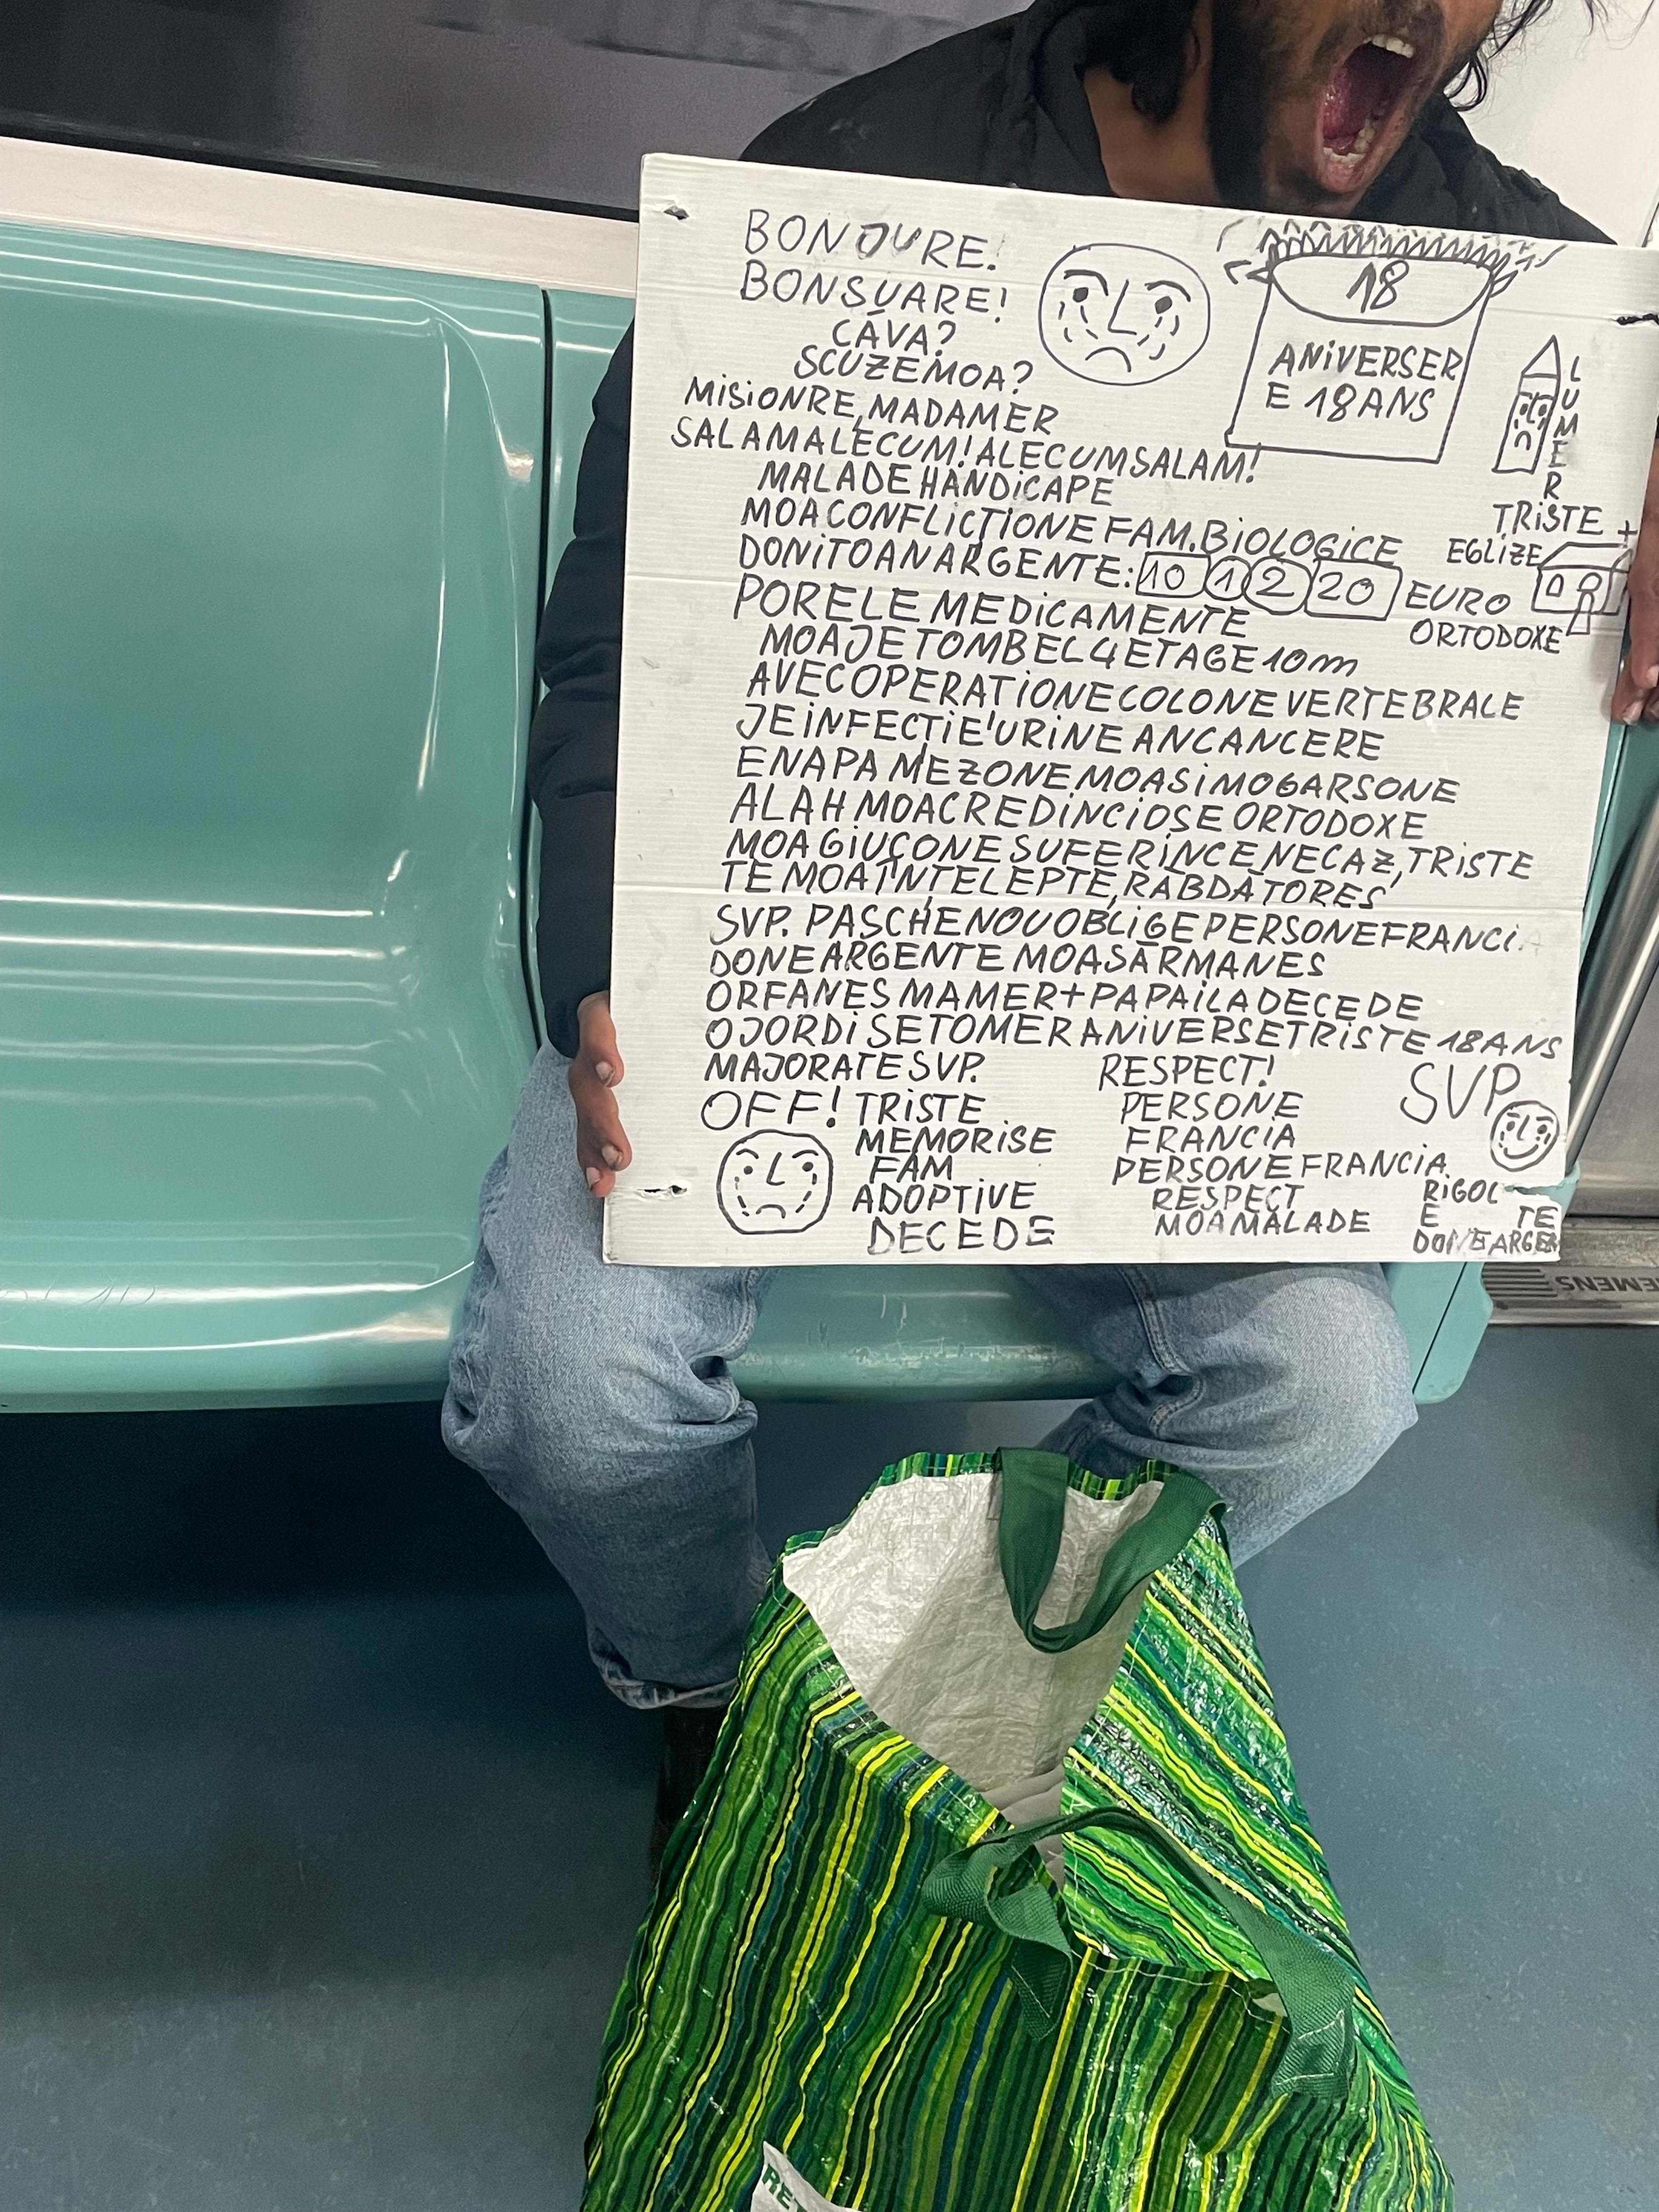 BONOURE!
BONSUARE!
CÁVA?
SCUZEMOA?
MISIONRE, MADAMER
SALAMALECUM! ALECUMSALAM!
MALADE HANDICAPE
MOACONFLICȚIONE FAM. BIOLOGICE
DONITOANARGENTE: 10 1 2 20 EURO
PORELE MEDICAMENTE
MOAJETOMBEL 4 ETAGE 10m
AVECOPERATIONECOLONEVERTEBRALE
JEINFECȚIE'URINE ANCANCERE
ENAPA MEZONE MOASIMOGARSONE
ALAH MOACREDINCIOSE ORTODOXE
MOAGIUCONE SUFERINCENECAZ, TRISTE
TEMOAÎNȚELEPTE, RĂBDĂTORES
SVP. PASCHENOUOBLIGEPERSONEFRANCIA
DONEARGENTE MOASĂRMANES
ORFANES MAMER+PAPAILADECEDE
OJORDISETOMERANIVERSETRISTE 18ANS
MAJORATESVP.
OFF! TRISTE
MEMORISE
FAM
ADOPTIVE
DECEDE
RESPECT!
PERSONE
FRANCIA
PERSONEFRANCIA
RESPECT
MOAMALADE
SVP
RIGOL
E TE
DONEARGEN
18
ANIVERSER
E 18ANS
LUMER
TRISTE
EGLIZE
ORTODOXE